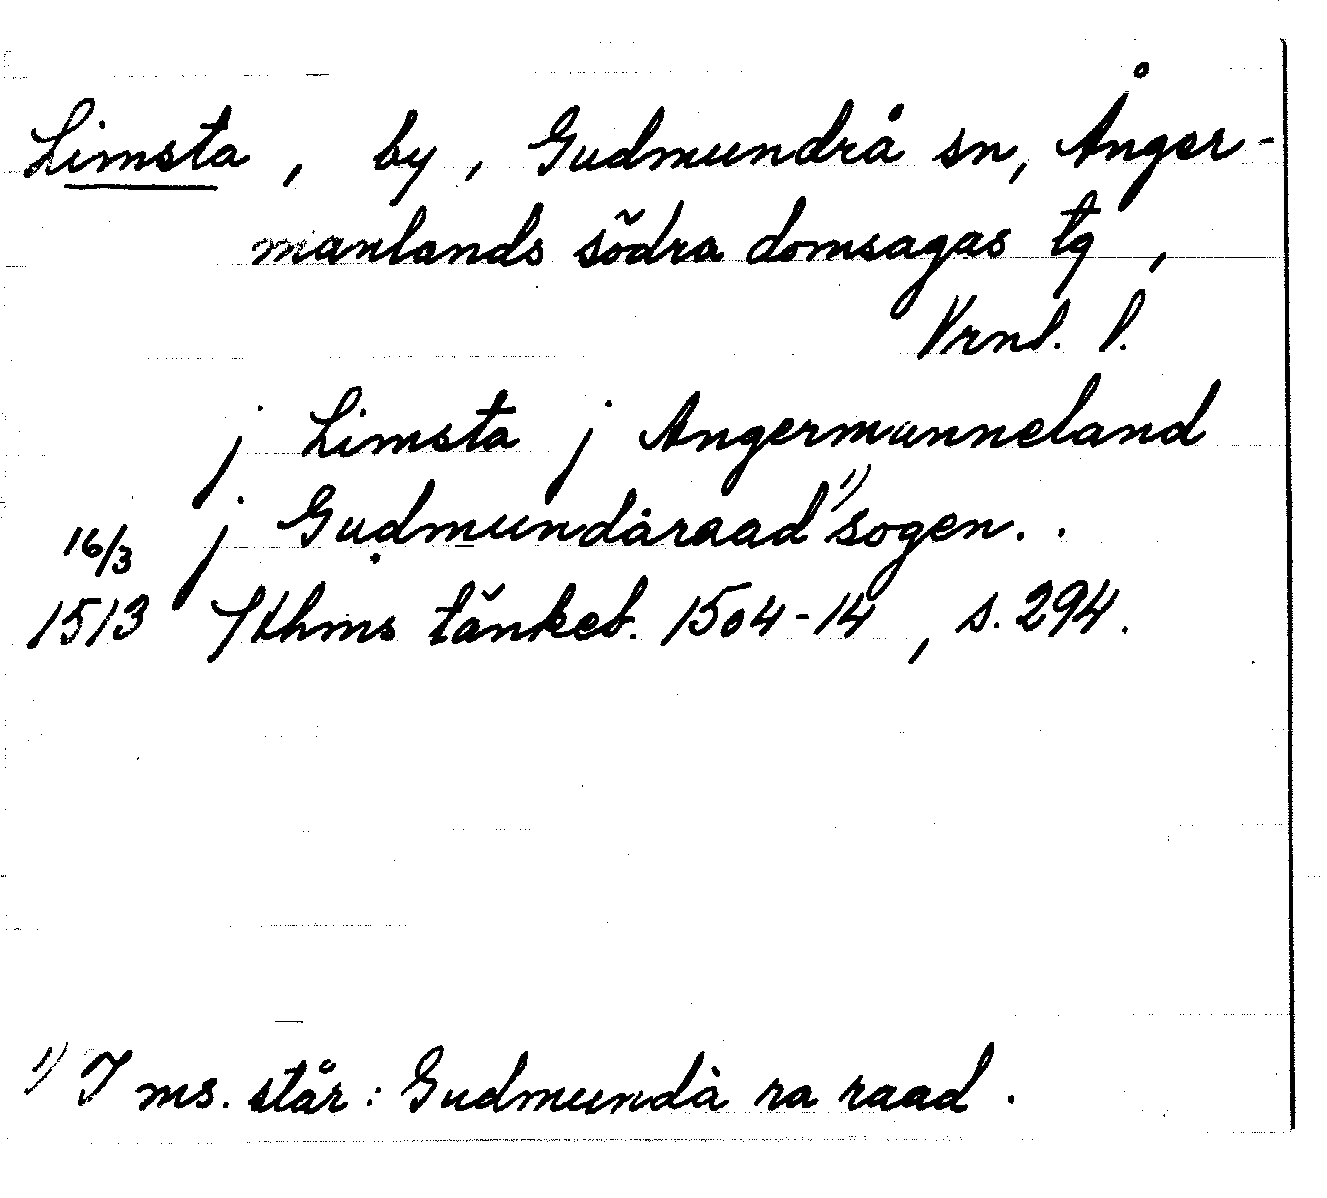 Limsta, by, Gudmundrå sn, Ånger-
manlands södra domsagas tg,
Vrnl. l.
j Limsta j Angermanneland
16/3 j Gudmundåraad¹⁾ sogen. .
1513 Sthms tänkeb. 1504-14, s. 294.
¹⁾ I ms. står: Gudmundå ra raad.